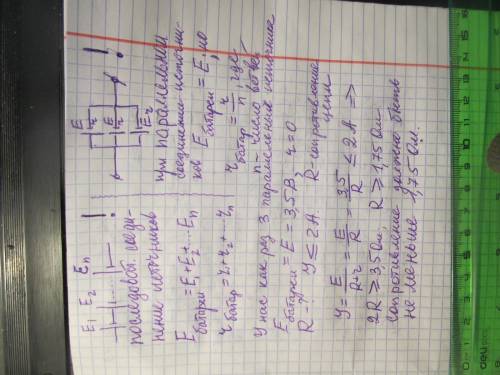 E₁ E₂ Eₙ !
последоват. соеди-
нение источников
E батареи = E₁+E₂+...Eₙ
r батар = r₁+r₂+...rₙ
E r
E r
E r !
при параллельном
соединении источни-
ков E батареи = E, но
r батар = r/n, где
n - число ветвей
У нас как раз 3 параллельных источника
E батареи = E = 3,5 В, r = 0
R - ? У ≤ 2А R - сопротивление
цепи
У = E/(R+r) = E/R = 3,5/R ≤ 2А =>
2R ≥ 3,5 Ом, R ≥ 1,75 Ом.
сопротивление должно быть
не меньше 1,75 Ом.